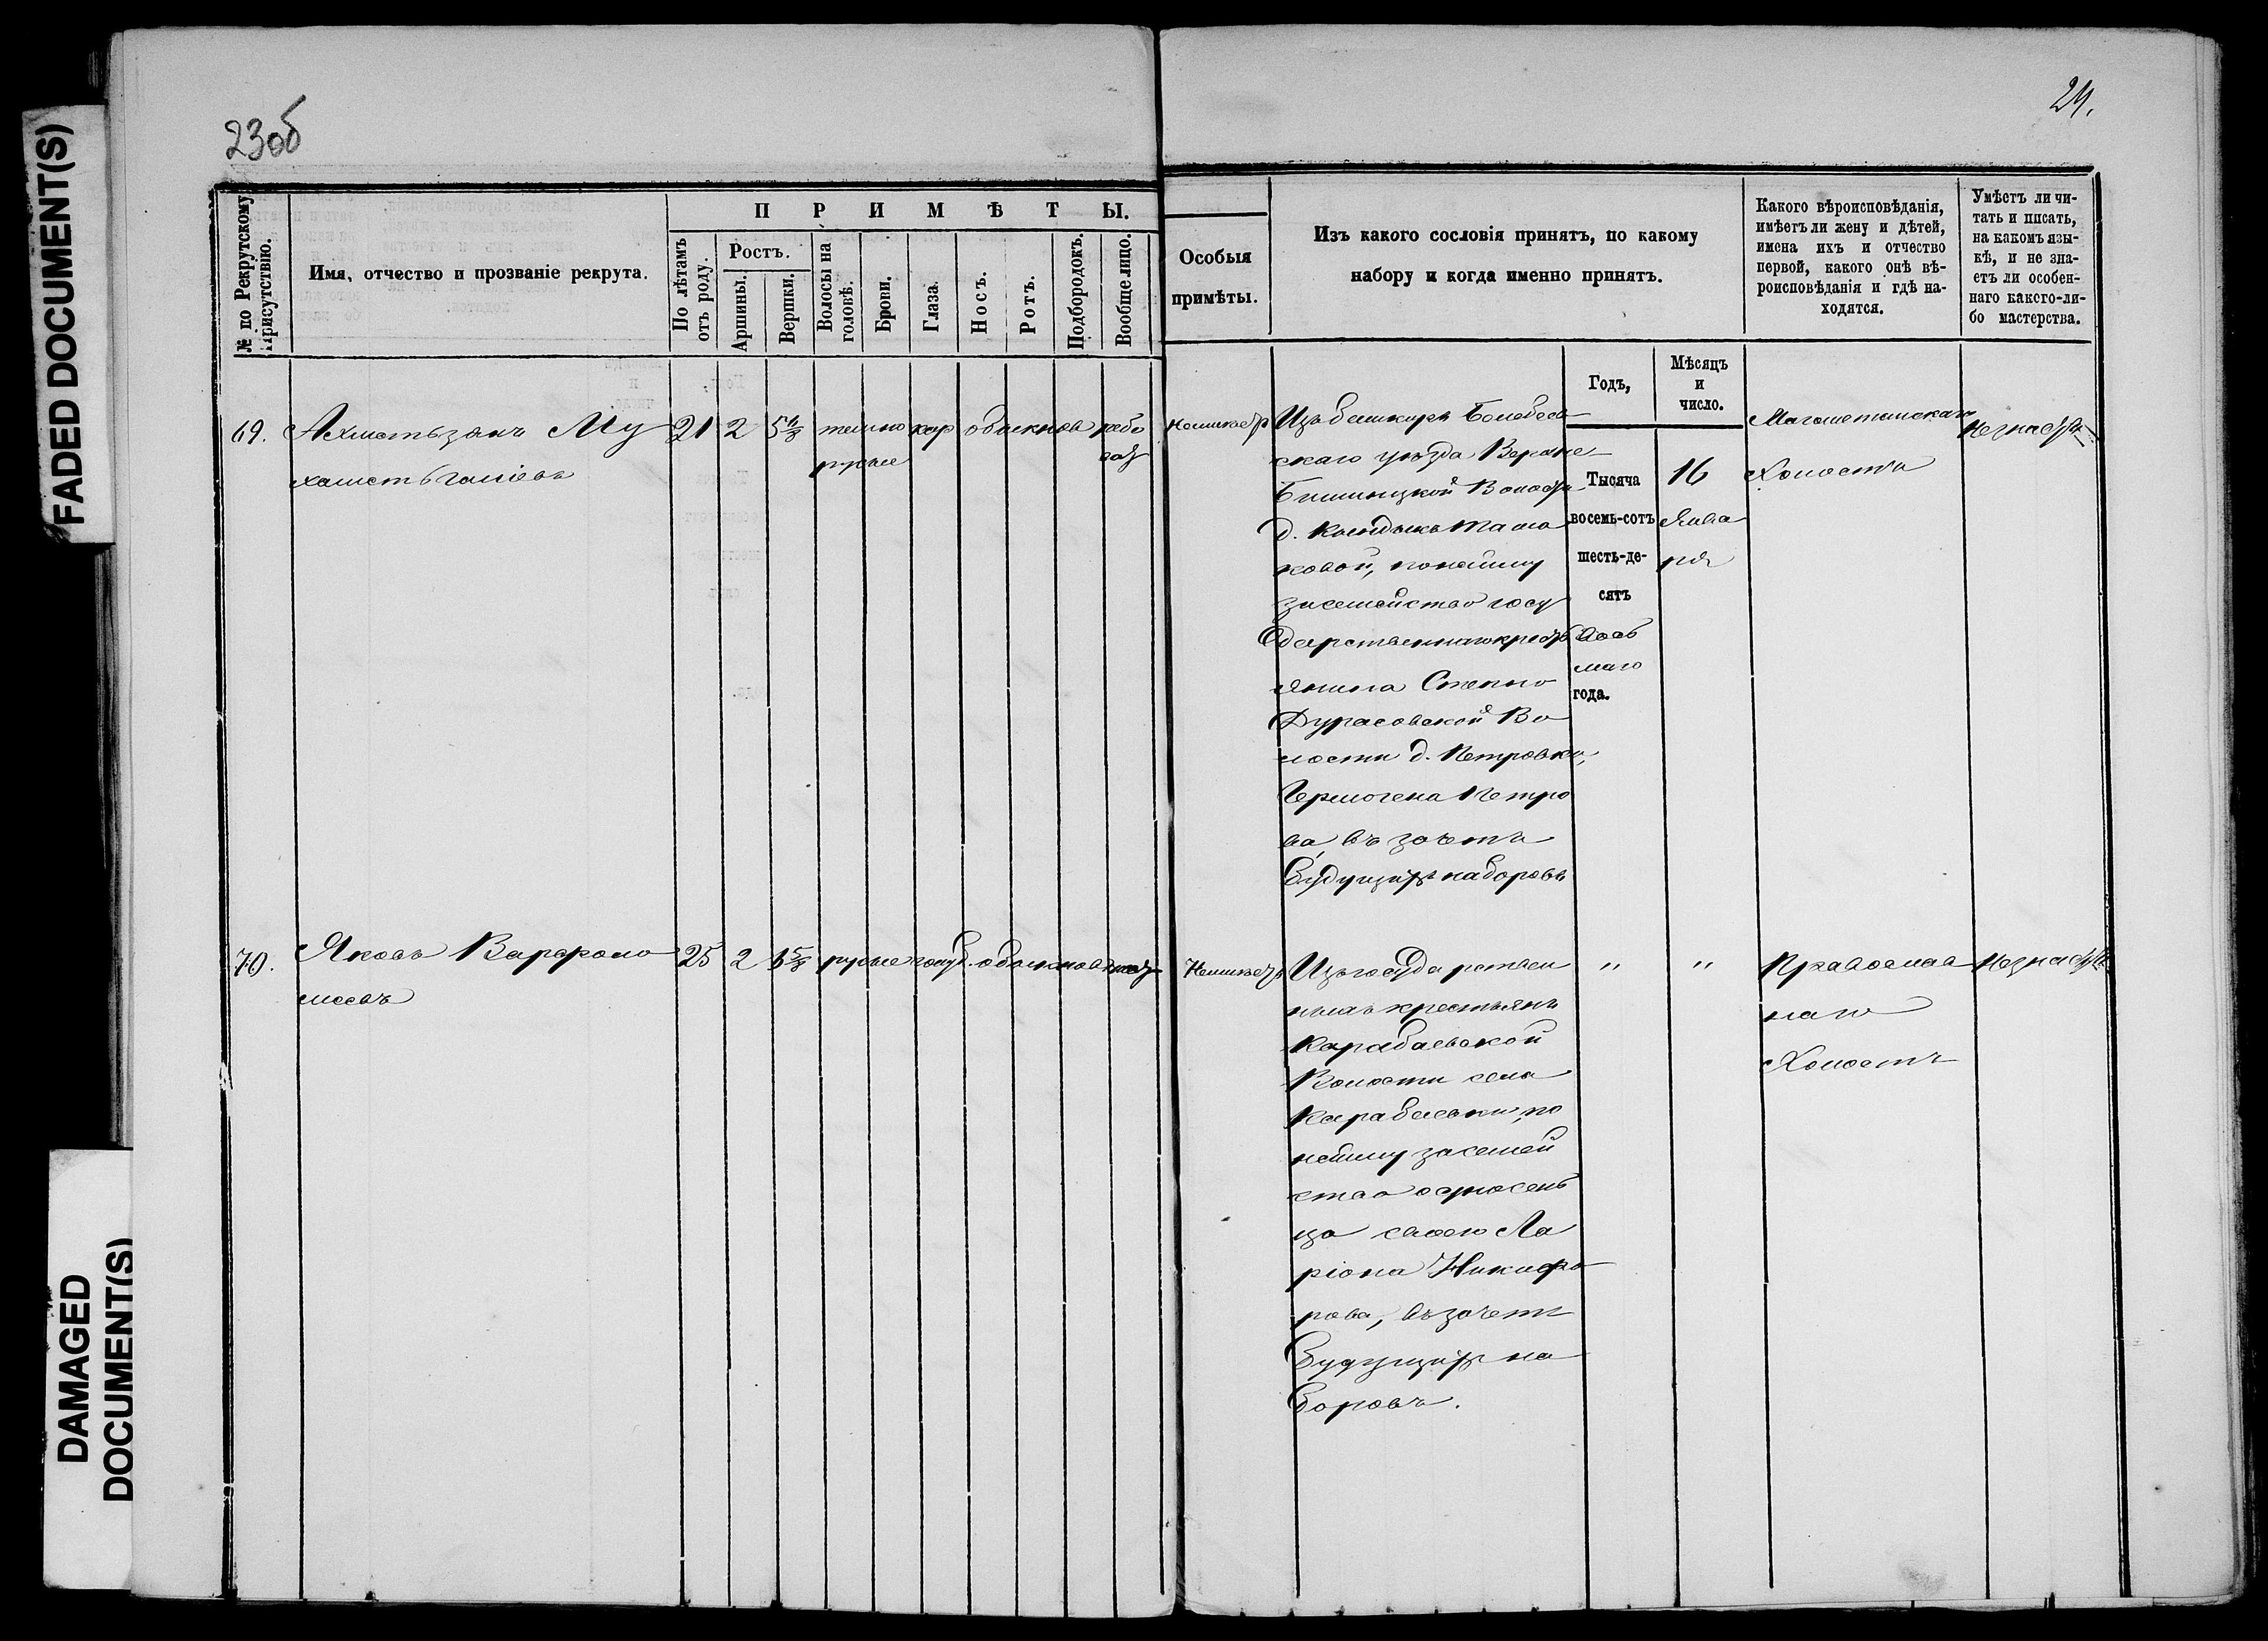 FADED DOCUMENT(S)
DAMAGED
DOCUMENT(S)
23об
24.
№ по Рекрутскому
Присутствію.
Имя, отчество и прозваніе рекрута.
ПРИМѢТЫ.
По лѣтамъ
отъ роду.
Ростъ.
Аршины.
Вершки.
Волосы на
головѣ.
Брови.
Глаза.
Носъ.
Ротъ.
Подбородокъ.
Вообще лицо.
Особыя
примѣты.
Изъ какого сословія принятъ, по какому
набору и когда именно принятъ.
Какого вѣроисповѣданія,
имѣетъ ли жену и дѣтей,
имена ихъ и отчество
первой, какого онѣ вѣ-
роисповѣданія и гдѣ на-
ходятся.
Умѣетъ ли чи-
тать и писать,
на какомъ язы-
кѣ, и не зна-
етъ ли особен-
наго какого-ли-
бо мастерства.
Годъ,
Мѣсяцъ
и
число.
69.
Ахметьзянъ Му
хаметьгаліевъ
21 2 5
темно
русые
кар
обыкнов
рябо
Изъ башкиръ Белебеев
скаго уѣзда Верхне
Бишиндской
д.
ковой, по найму
за семейство госу
дарственнаго кресть
янина Степно
Дурасовской Во
лости д. Петровки,
Гермогена Петро
ва, въ зачетъ
будущихъ наборовъ
Тысяча
восемь-сотъ
шесть-де-
сятъ
вось
маго
года.
16
Янва
ря
Магометанскаго
Холостъ
70.
Яковъ Варфоло
меевъ
25 2 6 5/8
русые
голуб.
обыкнов
Изъ государствен
ныхъ крестьянъ
Карабаевской
Волости села
Карабаевки, по
найму за семей
ство односель
ца своего Ла
ріона Никифо
рова, въ зачетъ
будущихъ на
боровъ.
" "
Православ
наго
Холостъ